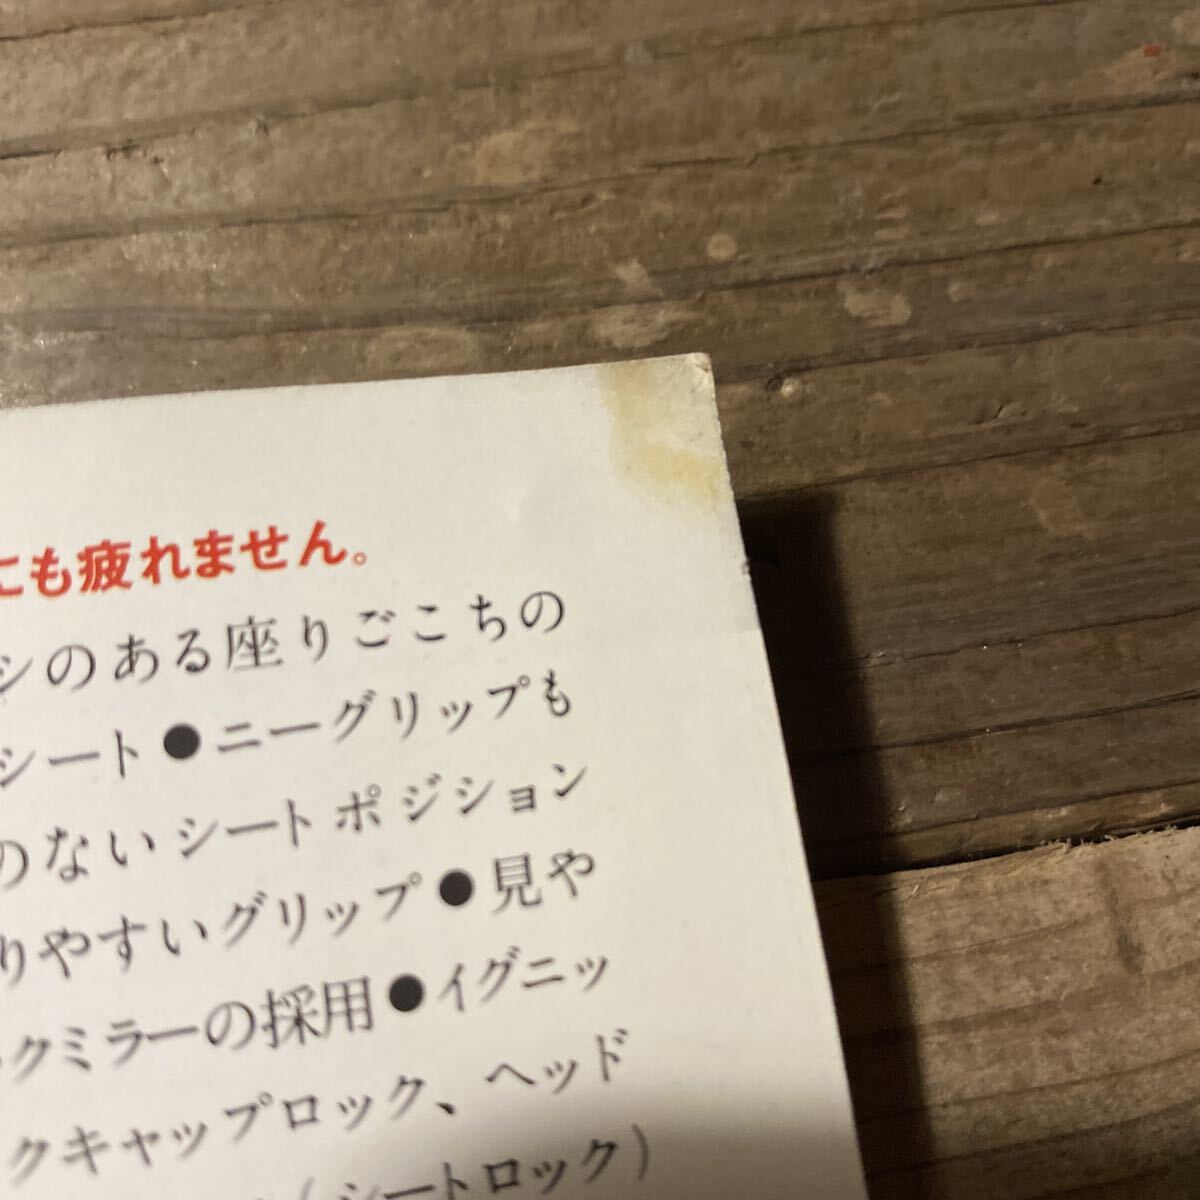 にも疲れません。
シのある座りごこちの
シート●ニーグリップも
のないシートポジション
りやすいグリップ●見や
クミラーの採用●イグニッ
クキャップロック、ヘッド
(シートロック)